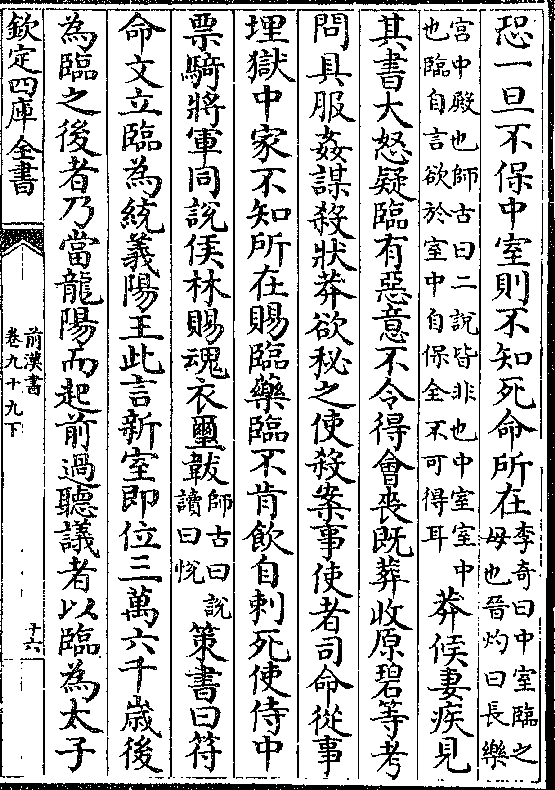 恐一旦不保中室則不知死命所在李奇曰中室臨之母也晉灼曰長樂
宮中殿也師古曰二說皆非也中室室中也臨自言欲於室中自保全不可得耳莽候妻疾見
其書大怒疑臨有惡意不令得會喪既葬收原碧等考
問具服姦謀殺狀莽欲秘之使殺案事使者司命從事
埋獄中家不知所在賜臨藥臨不肯飲自刺死使侍中
票騎將軍同說侯林賜魂衣璽韍師古曰說讀曰悅策書曰符
命文立臨為統義陽王此言新室即位三萬六千歲後
為臨之後者乃當龍陽而起前過聽議者以臨為太子
欽定四庫全書
前漢書
卷九十九下
十六